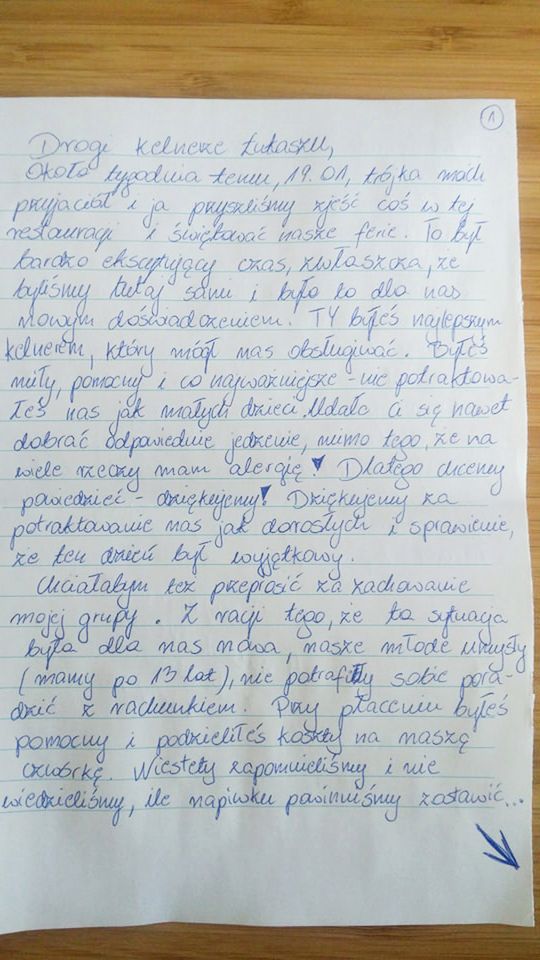 1
Drogi kelnerze Łukaszu,
Około tygodnia temu, 19.01, trójka moich
przyjaciół i ja przyszliśmy zjeść coś w tej
restauragi i świętować nasze ferie. To był
bardzo ekscytujący czas, zwłaszcza, że
byliśmy tutaj sami i było to dla nas
nowym doświadczeniem. TY byłeś najlepszym
kelnerem, który mógł nas obsługiwać. Byłeś
miły, pomocny i co najważniejsze - nie potraktowa-
łeś nas jak małych dzieci. Udało Ci się nawet
dobrać odpowiednie jedzenie, mimo tego, że na
wiele rzeczy mam alergię! Dlatego chcemy
powiedzieć - dziękujemy! Dziękujemy za
potraktowanie nas jak dorosłych i sprawienie,
że ten dzień był wyjątkowy.
Chciałabym też przeprosić za zachowanie
mojej grupy. Z racji tego, że ta sytuacja
była dla nas nowa, nasze młode umysły
(mamy po 13 lat), nie potrafiły sobie pora-
dzić z rachunkiem. Przy płaceniu byłeś
pomocny i podzieliłeś koszty na naszą
czwórkę. Niestety zapomnieliśmy i nie
wiedzieliśmy, ile napiwku powinniśmy zostawić...